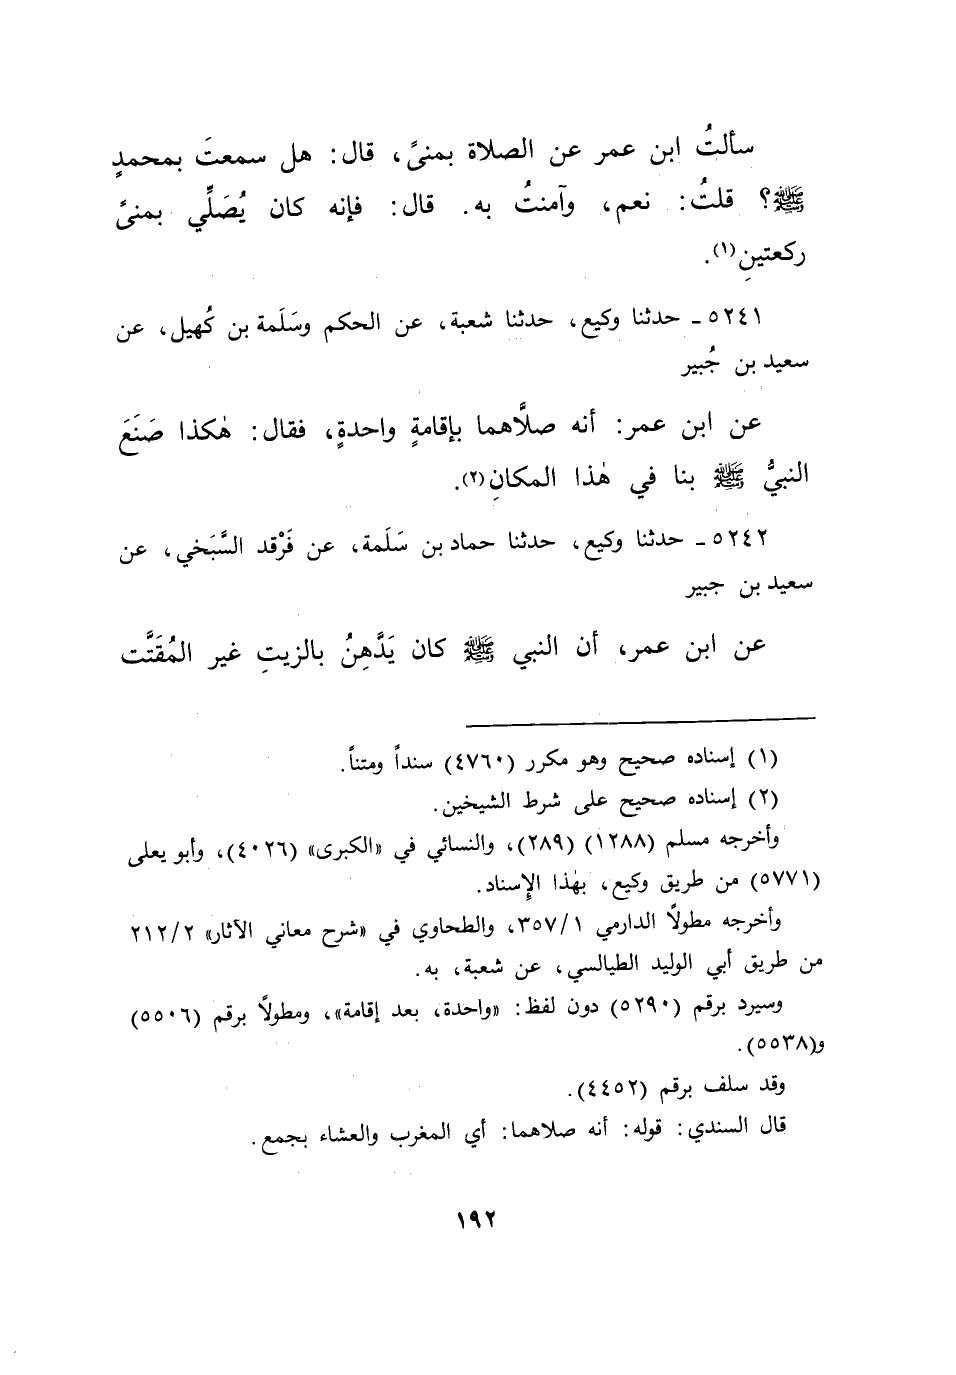 سألتُ ابن عمر عن الصلاة بمنىً، قال: هل سمعتَ بمحمدٍ
ﷺ؟ قلتُ: نعم، وآمنتُ به. قال: فإنه كان يُصَلِّي بمنىً
ركعتينِ(١).
٥٢٤١ ـ حدثنا وكيع، حدثنا شعبة، عن الحكم وسَلَمة بن كُهيل، عن
سعيد بن جُبير
عن ابن عمر: أنه صلَّاهما بإقامةٍ واحدةٍ، فقال: هٰكذا صَنَعَ
النبيُّ ﷺ بنا في هٰذا المكانِ(٢).
٥٢٤٢ ـ حدثنا وكيع، حدثنا حماد بن سَلَمة، عن فَرْقد السَّبَخي، عن
سعيد بن جبير
عن ابن عمر، أن النبي ﷺ كان يَدَّهِنُ بالزيتِ غير المُقَتَّت
(١) إسناده صحيح وهو مكرر (٤٧٦٠) سنداً ومتناً.
(٢) إسناده صحيح على شرط الشيخين.
وأخرجه مسلم (١٢٨٨) (٢٨٩)، والنسائي في «الكبرى» (٤٠٢٦)، وأبو يعلى
(٥٧٧١) من طريق وكيع، بهٰذا الإِسناد.
وأخرجه مطولًا الدارمي ٣٥٧/١، والطحاوي في «شرح معاني الآثار» ٢١٢/٢
من طريق أبي الوليد الطيالسي، عن شعبة، به.
وسيرد برقم (٥٢٩٠) دون لفظ: «واحدة، بعد إقامة»، ومطولًا برقم (٥٥٠٦)
و(٥٥٣٨).
وقد سلف برقم (٤٤٥٢).
قال السندي: قوله: أنه صلاهما: أي المغرب والعشاء بجمع.
١٩٢